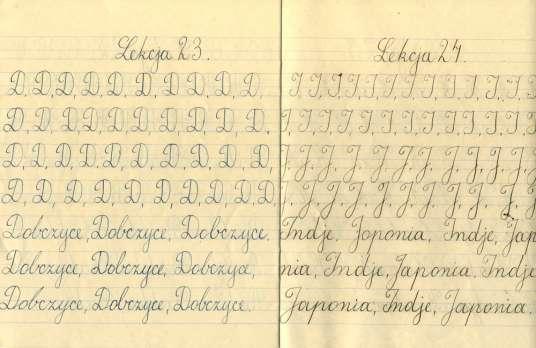 Lekcja 23.
D, D, D, D, D, D, D, D, D,
D, D, D, D, D, D, D, D, D,
D, D, D, D, D, D, D, D, D,
D, D, D, D, D, D, D, D, D, D
Dobczyce, Dobczyce, Dobczyce,
Dobczyce, Dobczyce, Dobczyce,
Dobczyce, Dobczyce, Dobczyce.
Lekcja 24.
I, I, I, I, I, I, I, I, I, I, I, I
I, I, I, I, I, I, I, I, I, I, I, I
J, J, J, J, J, J, J, J, J, J, J,
J, J, J, J, J, J, J, J, J, J, J
Indje, Japonia, Indje, Jap
nia, Indje, Japonia, Indje
Japonia, Indje, Japonia.